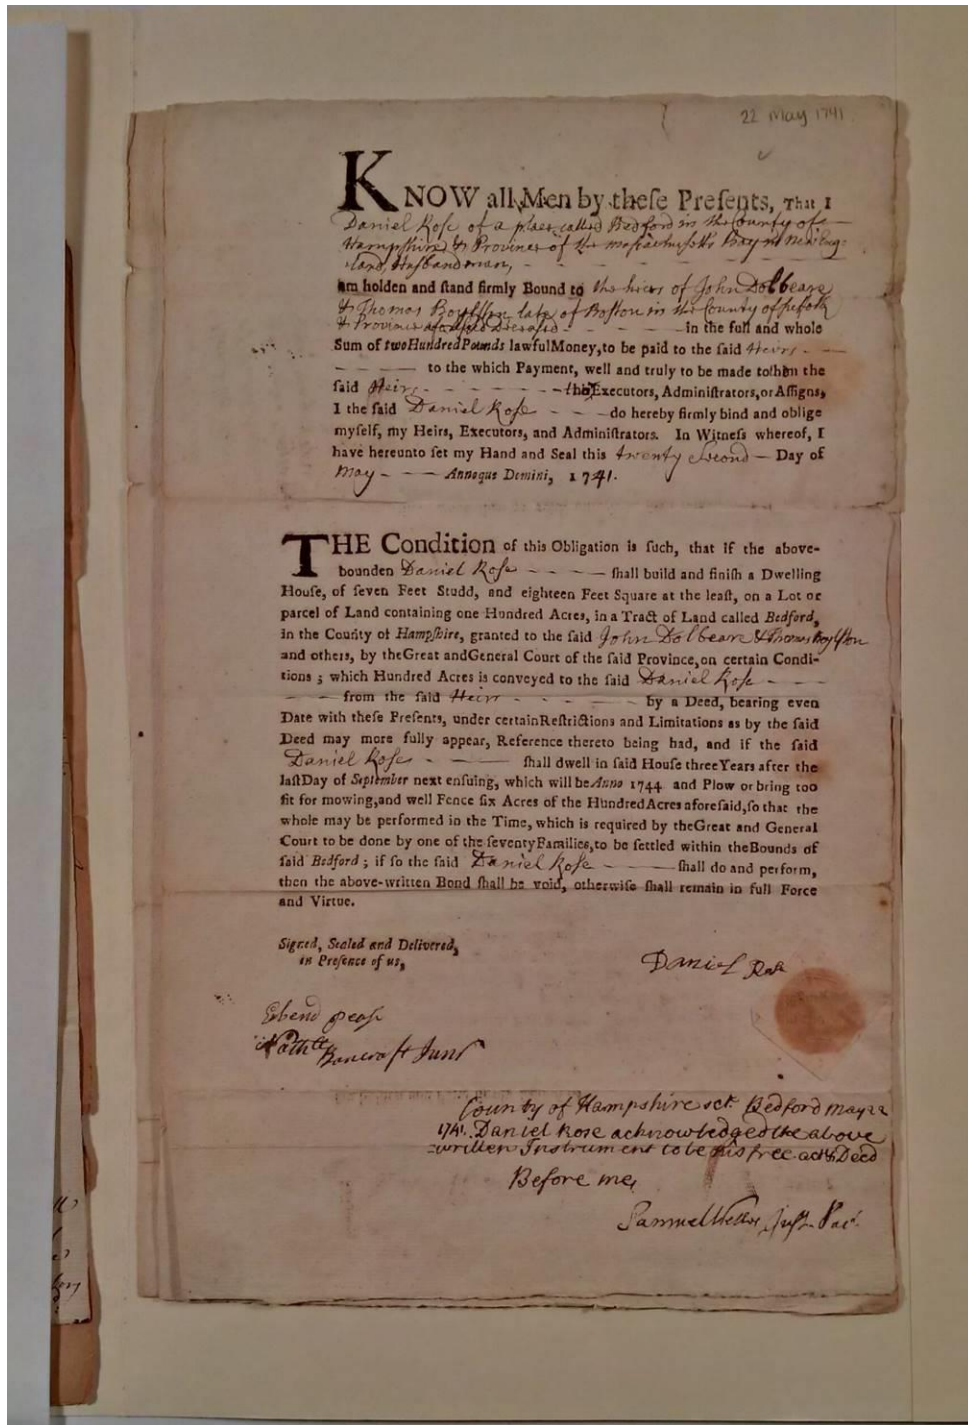 22 May 1741
KNOW all Men by theſe Preſents, That I
Daniel Roſe of a place called Bedford in the County of
Hampſhire & Province of the Maſsachuſetts Bay in New Eng-
land, Huſbandman, - - - - - -
am holden and ſtand firmly Bound to the heirs of John Dolbeare
& Thomas Boylſton late of Boſton in the County of Suffolk
& Province aforeſaid Deceaſed - - - - - in the full and whole
Sum of two Hundred Pounds lawful Money, to be paid to the ſaid Heirs - -
- - - - to the which Payment, well and truly to be made to them the
ſaid Heirs - - - - - - the Executors, Adminiſtrators, or Aſſigns,
I the ſaid Daniel Roſe - - - do hereby firmly bind and oblige
myſelf, my Heirs, Executors, and Adminiſtrators. In Witneſs whereof, I
have hereunto ſet my Hand and Seal this twenty Second - Day of
May - - - Annoque Domini, 1741.
THE Condition of this Obligation is ſuch, that if the above-
bounden Daniel Roſe - - - - ſhall build and finiſh a Dwelling
Houſe, of ſeven Feet Studd, and eighteen Feet Square at the leaſt, on a Lot or
parcel of Land containing one Hundred Acres, in a Tract of Land called Bedford,
in the County of Hampſhire, granted to the ſaid John Dolbeare & Thomas Boylſton
and others, by the Great and General Court of the ſaid Province, on certain Condi-
tions; which Hundred Acres is conveyed to the ſaid Daniel Roſe - - -
- - - from the ſaid Heirs - - - - - by a Deed, bearing even
Date with theſe Preſents, under certain Reſtrictions and Limitations as by the ſaid
Deed may more fully appear, Reference thereto being had, and if the ſaid
Daniel Roſe - - - - ſhall dwell in ſaid Houſe three Years after the
laſt Day of September next enſuing, which will be Anno 1744 and Plow or bring too
fit for mowing, and well Fence ſix Acres of the Hundred Acres aforeſaid, ſo that the
whole may be performed in the Time, which is required by the Great and General
Court to be done by one of the ſeventy Families, to be ſettled within the Bounds of
ſaid Bedford; if ſo the ſaid Daniel Roſe - - - ſhall do and perform,
then the above-written Bond ſhall be void, otherwiſe ſhall remain in full Force
and Virtue.
Signed, Sealed and Delivered,
in Preſence of us,
Daniel Roſe
Ebenr Peaſe
Nathll Bancroft Junr
County of Hampshire sct. Bedford may 22
1741. Daniel Rose acknowledged the above
written Instrument to be his free act & Deed
Before me,
Samuel Just. Pac.